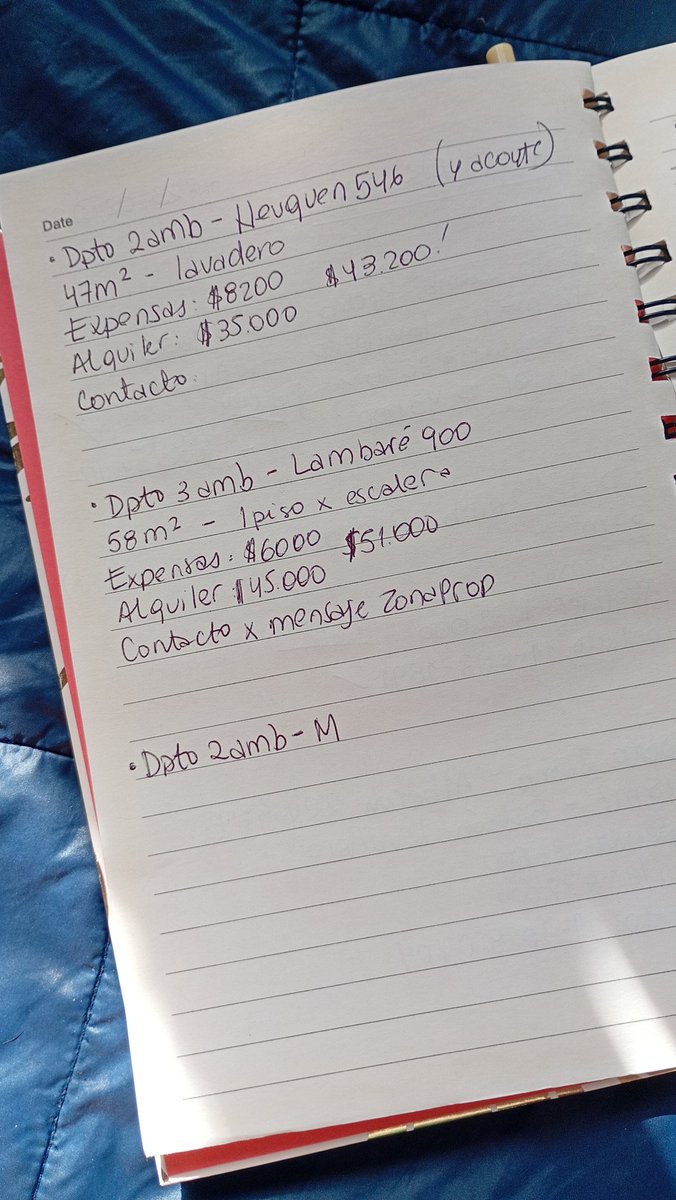 Date / /
• Dpto 2amb - Neuquen 546 (y acoyte)
47m² - lavadero
Expensas: $8200 $43.200!
Alquiler: $35.000
Contacto:
• Dpto 3 amb - Lambaré 900
58m² - 1piso x escalera
Expensas: $6000 $51.000
Alquiler $45.000
Contacto x mensaje Zonaprop
• Dpto 2amb - M